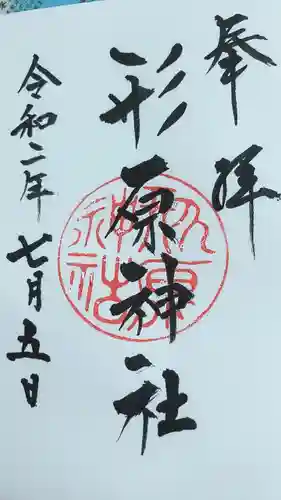 奉拝
形原神社
令和二年七月五日